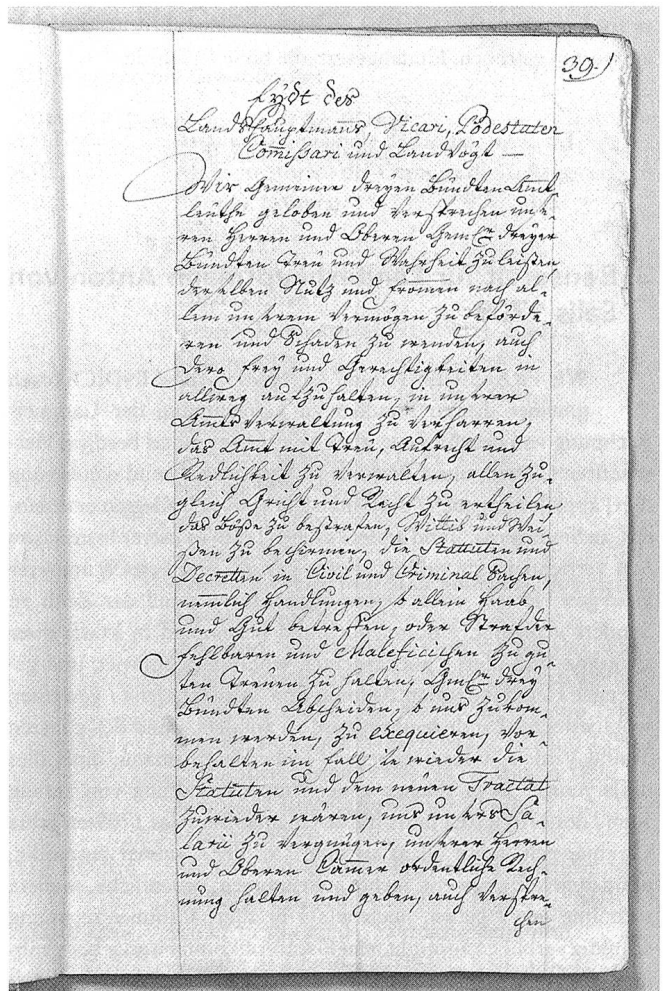 39.
Eydt des
Landshauptmanns, Vicari, Podestaten
Commissari und Landvögt —
Wir Gemeiner dreyen Bündten Ambt-
leüthe geloben und versprechen unse-
ren Herren und Oberen Gemr dreyer
Bündten Treü und Wahrheit zu leisten,
derselben Nutz und frommen nach al-
lem unserem Vermögen zu beförde-
ren und Schaden zu wenden, auch
dero frey und Gerechtigkeiten in
allweg aufzuhalten, in unserer
Ambtsverwaltung zu verharren,
das Ambt mit Treü, Aufrecht und
Redlichkeit zu verwalten, allen zu-
gleich Gricht und Recht zu ertheilen,
das Böße zu bestrafen, Wittib und Wei-
ßen zu beschirmen, die Statuten und
Decretten in Civil und Criminal Sachen,
nemmlich Handlungen, so allein Haab
und Gut betreffen, oder Straf der
fehlbaren und Maleficischen zu gu-
ten Treüen zu halten, Gmr drey
Bündten Abscheiden, so uns zukom-
men werden, zu exequieren, Vor-
behalten im fall sie wieder die
Statuten und dem neüen Tractat
zuwieder wären, uns unsers Sa-
larii zu vergnügen, unserer Herren
und Oberen Cammer ordentliche Rech-
nung halten und geben, auch verspre-
chen